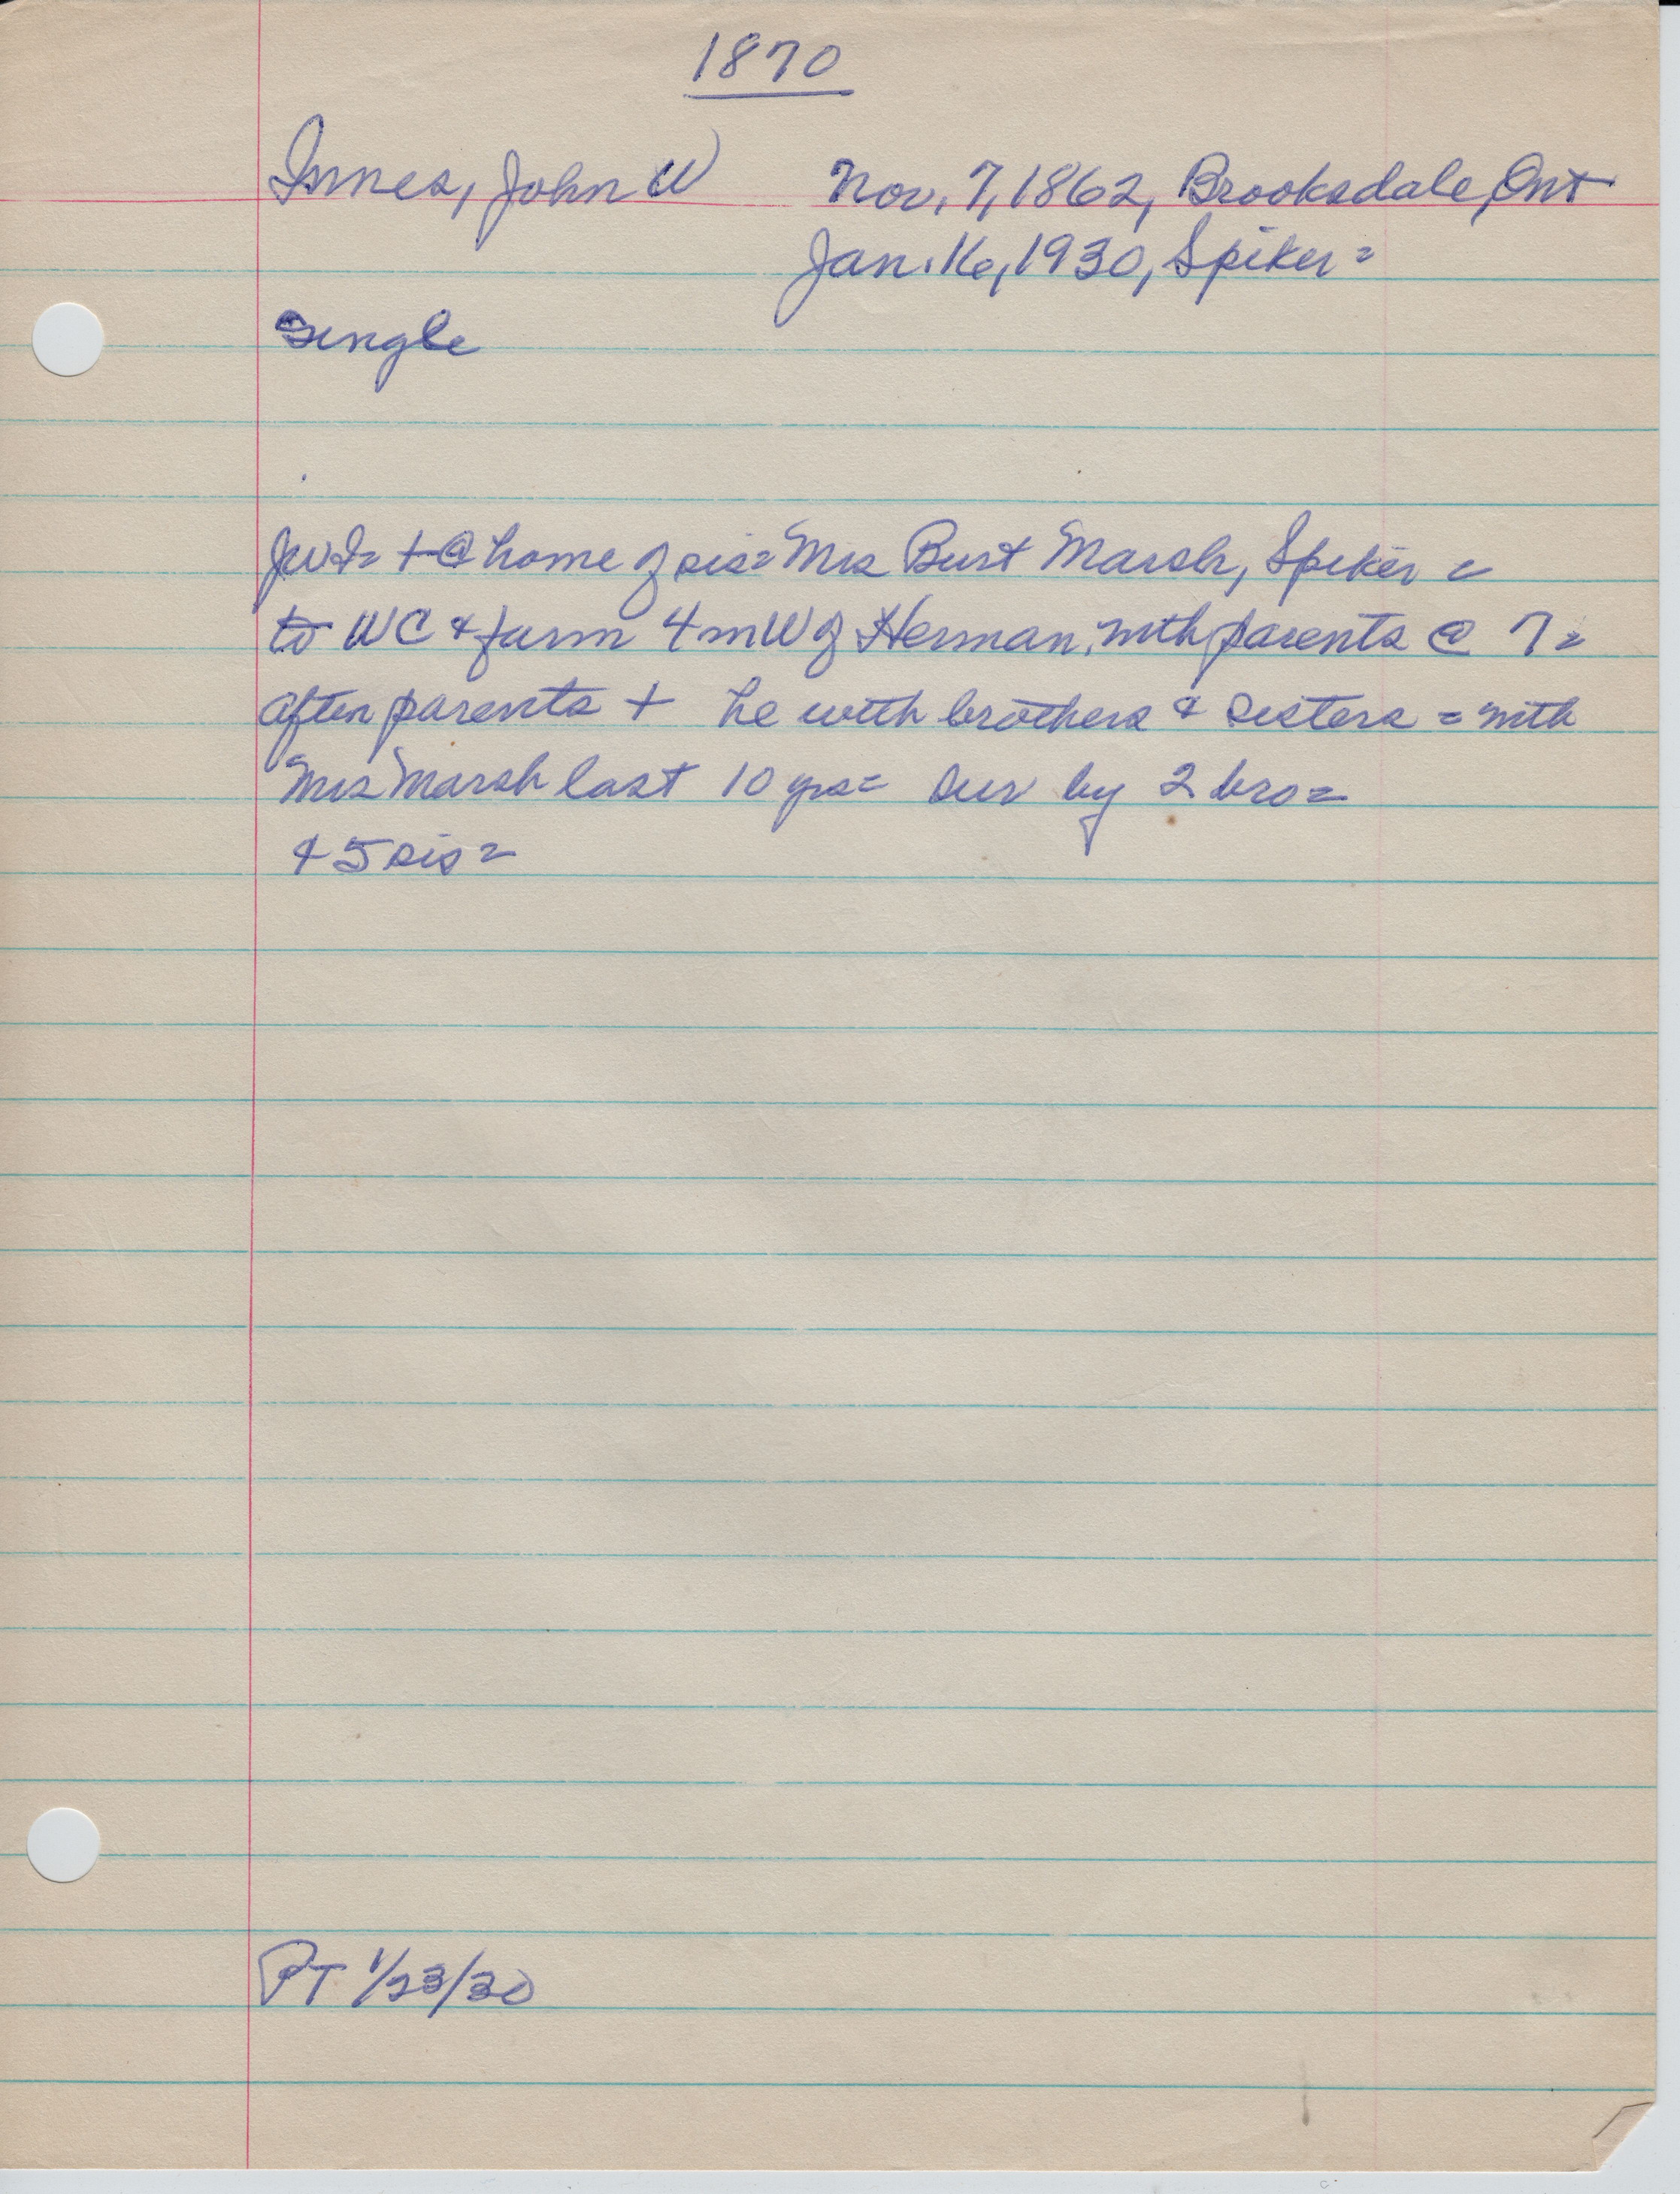 1870
Innes, John W Nov. 7, 1862, Brooksdale, Ont
Jan. 16, 1930, Spiker =
single
JWI = + @ home of sis = Mrs Burt Marsh, Spiker =
to WC & farm 4 m W of Herman, with parents @ 7 =
after parents + he with brothers & sisters = with
Mrs Marsh last 10 yrs = sur by 2 bro =
& 5 sis =
PT 1/23/30